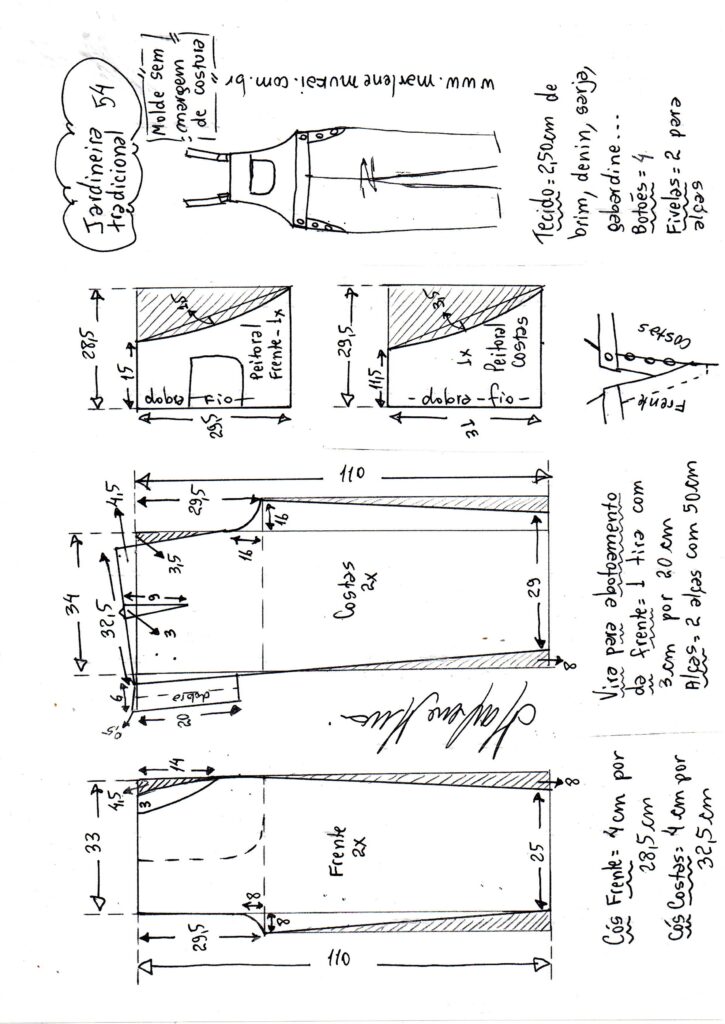 Jardineira 54
tradicional
Molde sem
margem
de costura
www.marlenemukai.com.br
Tecido = 2,50cm de
brim, denin, sarja,
gabardine...
Botões = 4
Fivelas = 2 para
alças
28,5
15
29,5
3,5
dobra
-FIO-
Peitoral
Frente - 1x
29,5
11,5
31
3,5
dobra - fio -
1x
Peitoral
Costas
Frente
Costas
34
32,5
4,5
3,5
9
3
6
0,5
20
dobra
29,5
16
16
110
Costas
2x
29
8
Vira para abotoamento
da frente = 1 tira com
3cm por 20cm
Alças = 2 alças com 50cm
33
4,5
3
14
29,5
8
8
110
Frente
2x
25
8
Cós Frente = 4cm por
28,5cm
Cós Costas = 4cm por
32,5cm